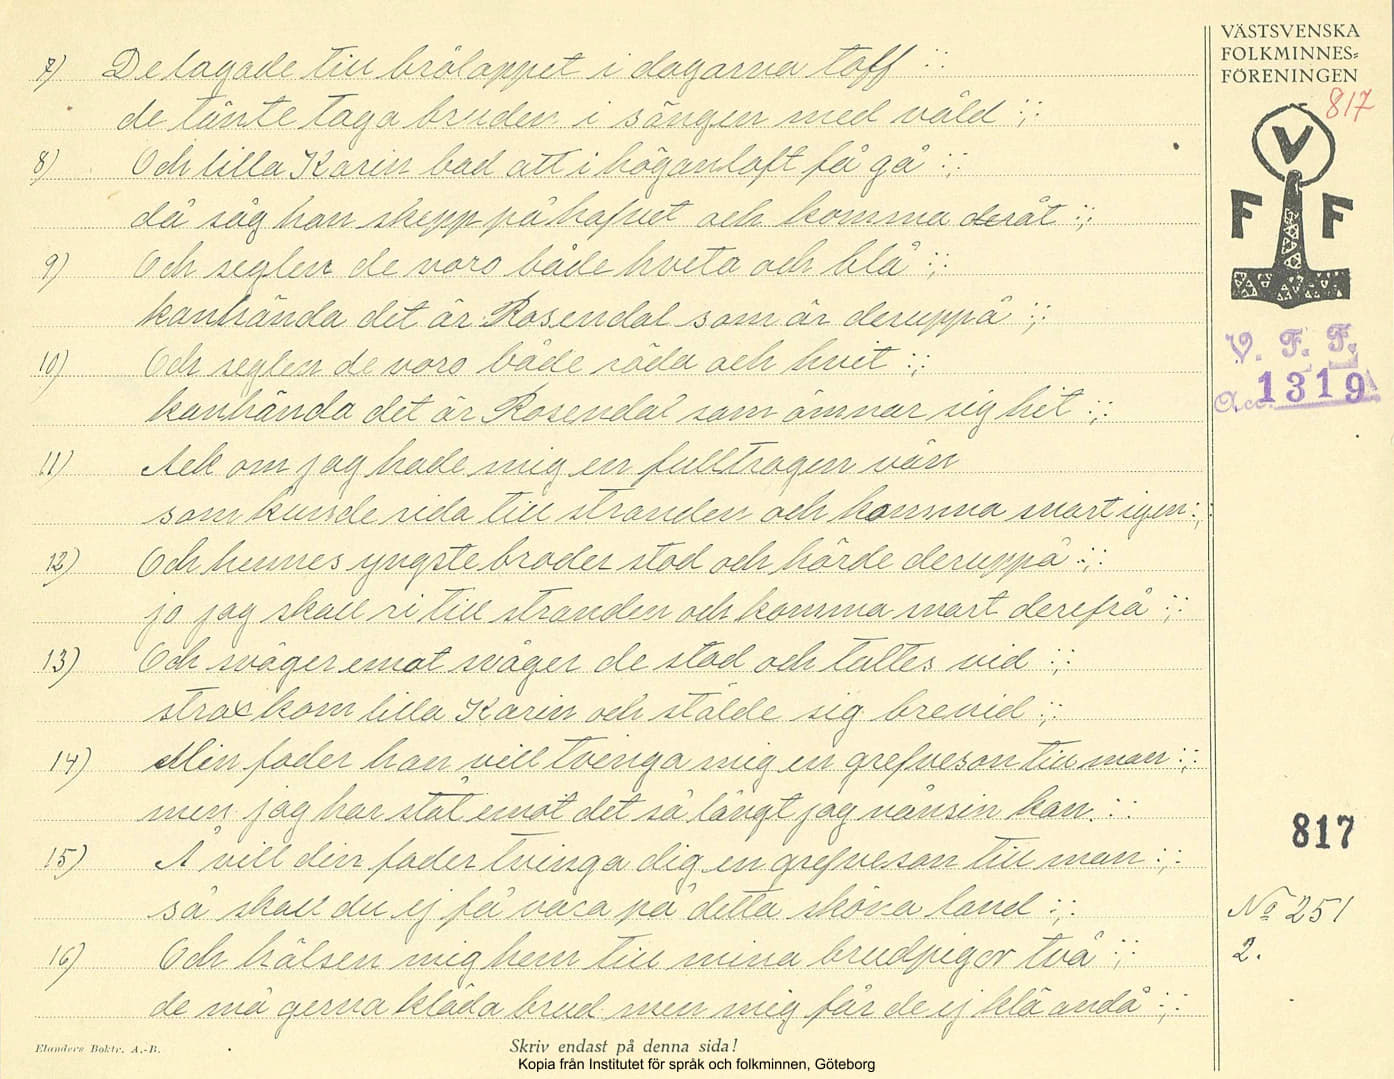 VÄSTSVENSKA
FOLKMINNES-
FÖRENINGEN
817
V
F F
V. F. F.
Acc. 1319
7) De lagade till bröloppet i dagarna tolf :,:
de tänte taga bruden i sängen med våld :,:
8) Och lilla Karin bad att i höganloft få gå :,:
då såg hon skepp på hafvet och komma deråt :,:
9) Och seglen de voro både hvita och blå :,:
kanhända det är Rosendal som är deruppå :,:
10) Och seglen de voro både röda och hvit :,:
kanhända det är Rosendal som ämnar sig hit :,:
11) Ack om jag hade mig en fulltrogen vän
som kunde rida till stranden och komma snart igen :,:
12) Och hennes yngste broder stod och hörde deruppå :,:
jo jag skall ri till stranden och komma snart derifrå :,:
13) Och svåger emot svåger de stod och taltes vid :,:
strax kom lilla Karin och stälde sig brevid :,:
14) Min fader han vill tvinga mig en grefveson till man :,:
men jag har ståt emot det så långt jag nånsin kan :,:
15) Å vill din fader tvinga dig en grefveson till man :,:
så skall du ej få vara på detta sköna land :,:
16) Och hälsen mig hem till mina brudpigor två :,:
de må gerna kläda brud men mig får de ej klä ändå :,:
817
No 251
2.
Elanders Boktr. A.-B.
Skriv endast på denna sida!
Kopia från Institutet för språk och folkminnen, Göteborg